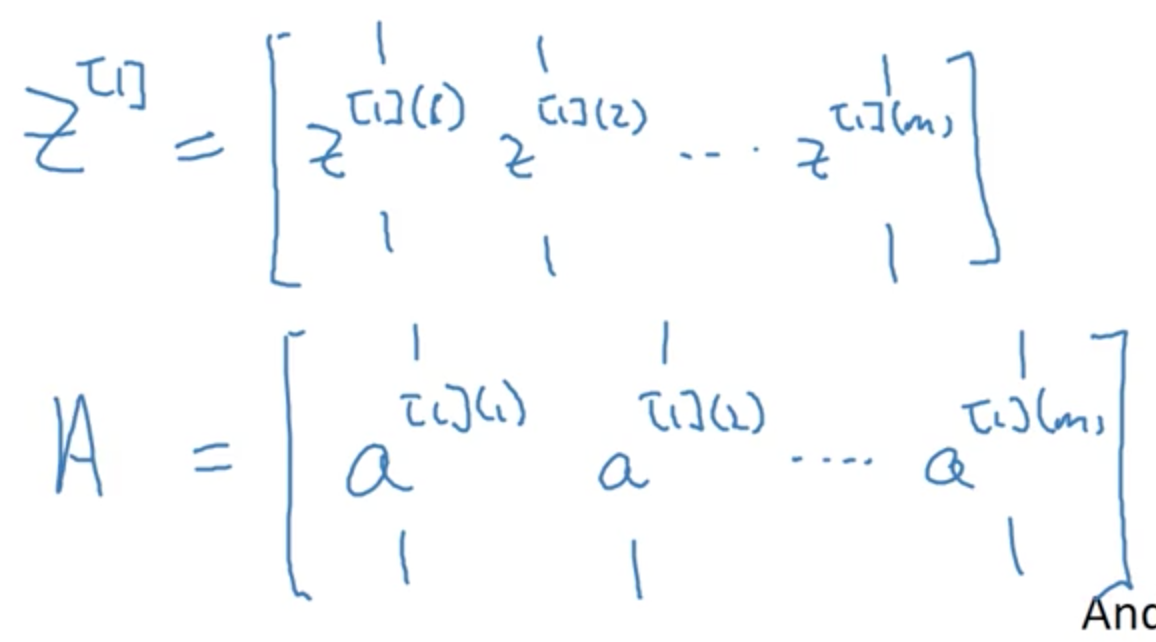 Z^[1] = [ z^[1](1) z^[1](2) ... z^[1](m) ]
A = [ a^[1](1) a^[1](2) .... a^[1](m) ]
And